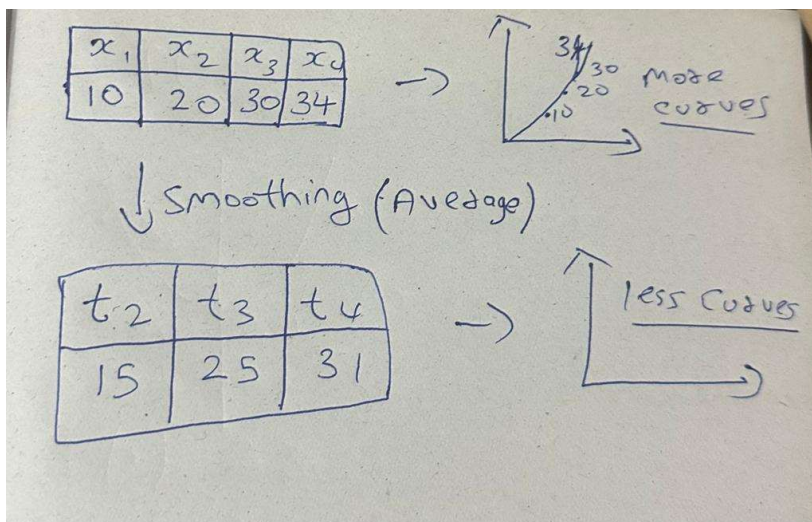 x1 x2 x3 x4
10 20 30 34
→ 34
30
20
10
More
curves
↓ Smoothing (Average)
t2 t3 t4
15 25 31
→ less curves